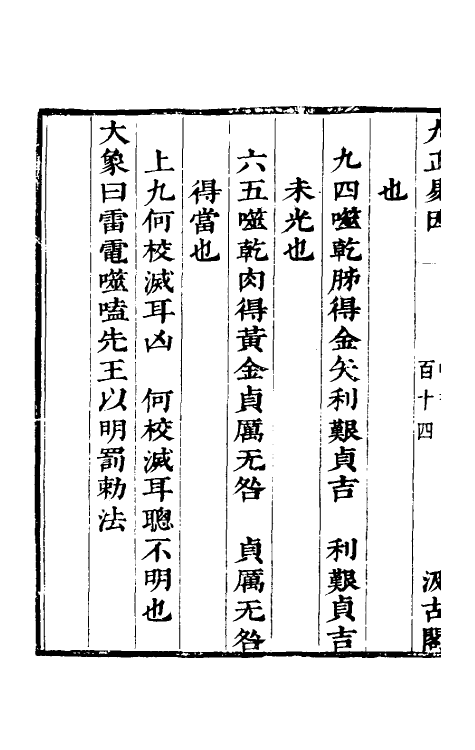 九正易因 百十四 汲古閣
也
九四噬乾胏得金矢利艱貞吉　利艱貞吉
未光也
六五噬乾肉得黃金貞厲无咎　貞厲无咎
得當也
上九何校滅耳凶　何校滅耳聰不明也
大象曰雷電噬嗑先王以明罰勅法